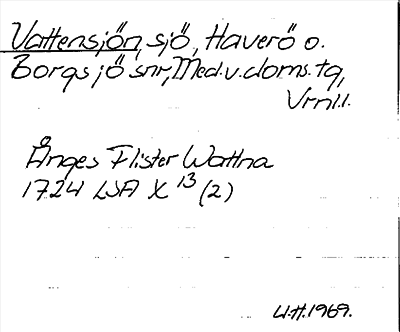 Vattensjön, sjö, Haverö o.
Borgsjö snr, Med.v.doms.tg,
Vrnl.l.
Ånges Flister Wattna
1724 LSA X 13 (2)
U.H. 1969.